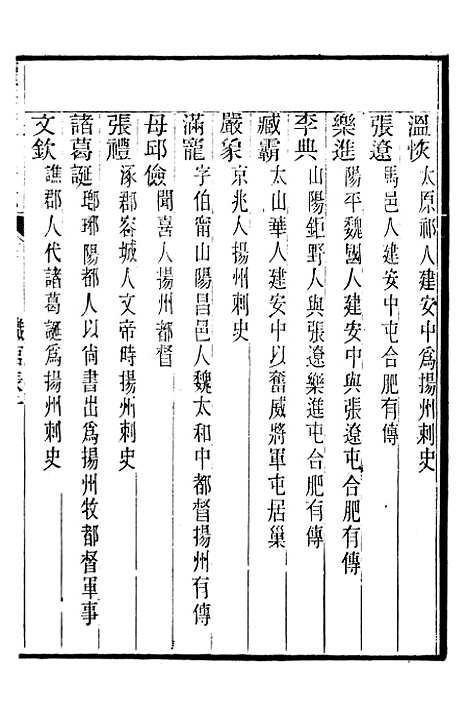 溫恢太原祁人建安中為揚州刺史
張遼馬邑人建安中屯合肥有傳
樂進陽平魏國人建安中與張遼屯合肥有傳
李典山陽鉅野人與張遼樂進屯合肥有傳
臧霸太山華人建安中以奮威將軍屯居巢
嚴象京兆人揚州刺史
滿寵字伯甯山陽昌邑人魏太和中都督揚州有傳
毋邱儉聞喜人揚州都督
張禮涿郡容城人文帝時揚州刺史
諸葛誕瑯琊陽都人以尙書出為揚州牧都督軍事
文欽譙郡人代諸葛誕爲揚州刺史